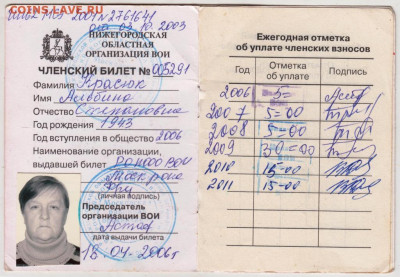 СОИНЫ.СОВ.RU
МСЭ 2004 № 2761641
от 03.10.2003
НИЖЕГОРОДСКАЯ
ОБЛАСТНАЯ
ОРГАНИЗАЦИЯ ВОИ
ЧЛЕНСКИЙ БИЛЕТ № 005291
Фамилия Красюк
Имя Альбина
Отчество Степановна
Год рождения 1943
Год вступления в общество 2006
Наименование организации,
выдавшей билет РО НОО ВОИ
(личная подпись)
Председатель
организации ВОИ
дата выдачи билета
18.04.2006г
Ежегодная отметка
об уплате членских взносов
Год Отметка об уплате Подпись
2006 5=
2007 5=00
2008 5=00
2009 30=00
2010 15-00
2011 15-00